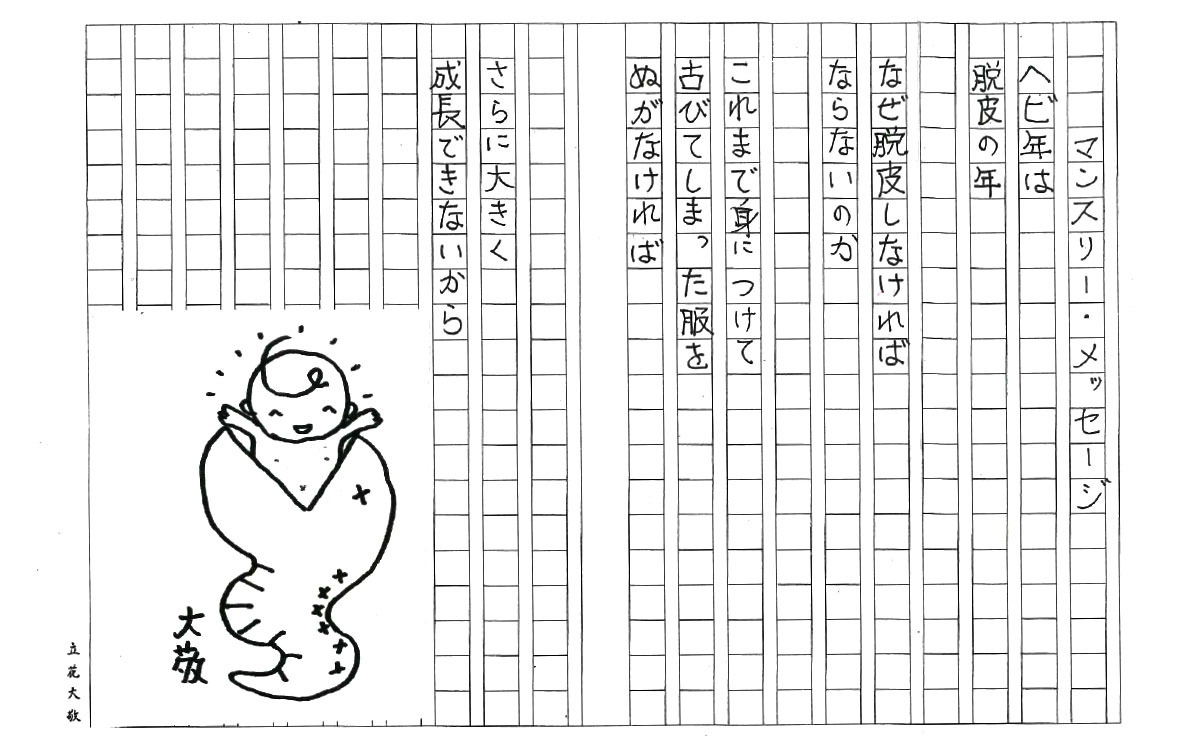 マンスリー・メッセージ
ヘビ年は
脱皮の年
なぜ脱皮しなければ
ならないのか
これまで身につけて
古びてしまった服を
ぬがなければ
さらに大きく
成長できないから
大敬
立花大敬